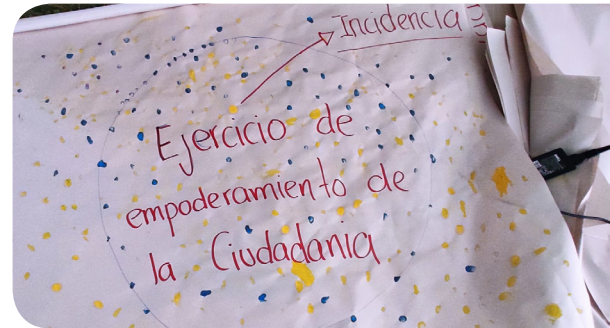 Incidencia
Ejercicio de
empoderamiento de
la Ciudadania